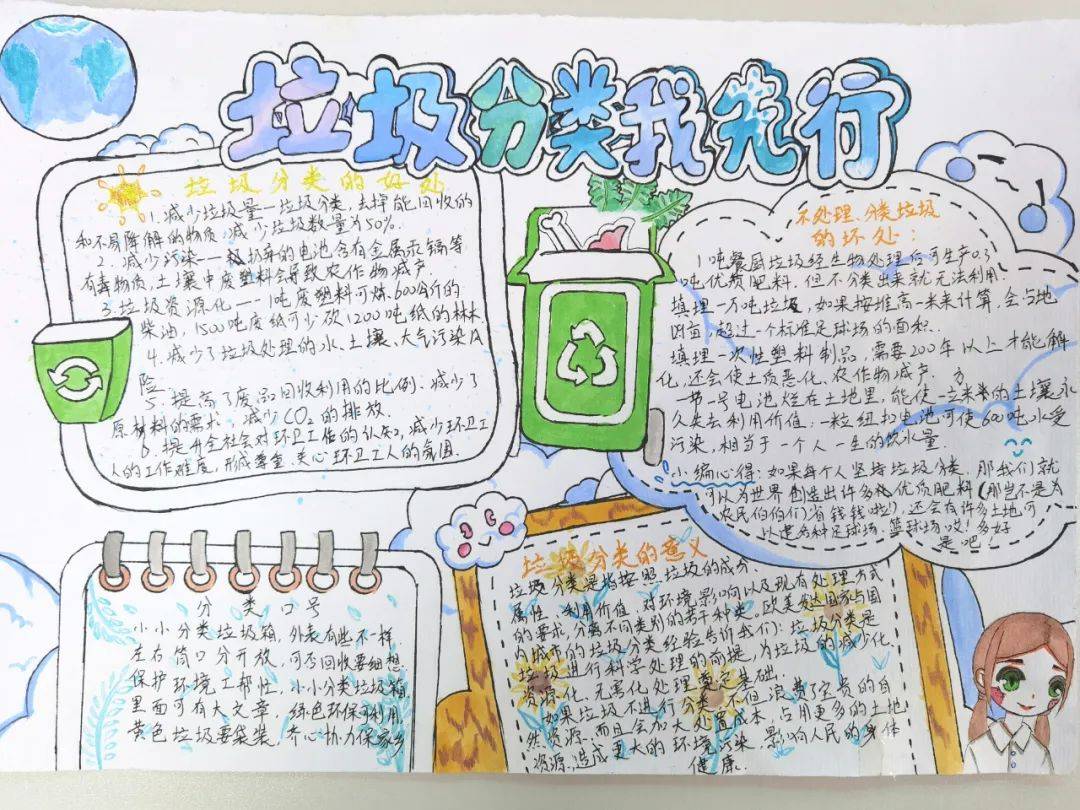 垃圾分类我先行
垃圾分类的好处
1.减少垃圾量—垃圾分类,去掉能回收的
和不易降解的物质,减少垃圾数量为50%.
2.减少污染——废弃的电池含有金属汞镉等
有毒物质,土壤中废塑料会导致农作物减产
3.垃圾资源化——1吨废塑料可炼600公斤的
柴油,1500吨废纸可少砍1200吨纸的林木
4.减少了垃圾处理的水、土壤、大气污染风
险
5.提高了废品回收利用的比例、减少了
原材料的需求,减少CO2的排放.
6.提升全社会对环卫工作的认知,减少环卫工
人的工作难度,形成尊重、关心环卫工人的氛围.
不处理、分类垃圾
的坏处:
1吨餐厨垃圾经生物处理后可生产0.3
吨优质肥料,但不分类出来就无法利用
填埋一万吨垃圾,如果按堆高一米来计算,会占地
四亩,超过一个标准足球场的面积.
填埋一次性塑料制品,需要200年以上才能解
化,还会使土质恶化、农作物减产.
一节一号电池烂在土地里,能使一立方米的土壤永
久失去利用价值.一粒纽扣电池可使600吨水受
污染,相当于一个人一生的饮水量.
小编心得:如果每个人坚持垃圾分类,那我们就
可以为世界创造出许多优质肥料(那岂不是为
农民伯伯们省钱钱啦!),还会有许多土地可
以建各种足球场、篮球场哎!多好
是吧!
分类口号
小小分类垃圾箱,外表有些不一样,
左右筒口分开放,可否回收要细想.
保护环境工帮性,小小分类垃圾箱
里面可有大文章,绿色环保可利用
黄色垃圾要袋装,齐心协力保家乡
垃圾分类的意义
垃圾分类是指按照垃圾的成分、
属性、利用价值、对环境影响以及现有处理方式
的要求,分离不同类别的若干种类.欧美发达国家与国
内城市的垃圾分类经验告诉我们:垃圾分类是
垃圾进行科学处理的前提,为垃圾的减少化、
资源化、无害化处理奠定基础.
如果垃圾不进行分类,不但浪费了宝贵的自
然资源,而且会加大处置成本,占用更多的土地
资源,造成更大的环境污染,影响人民的身体
健康.